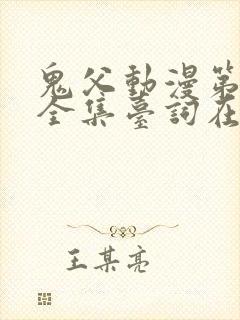 鬼父動漫第
全集臺詞在
王某亮